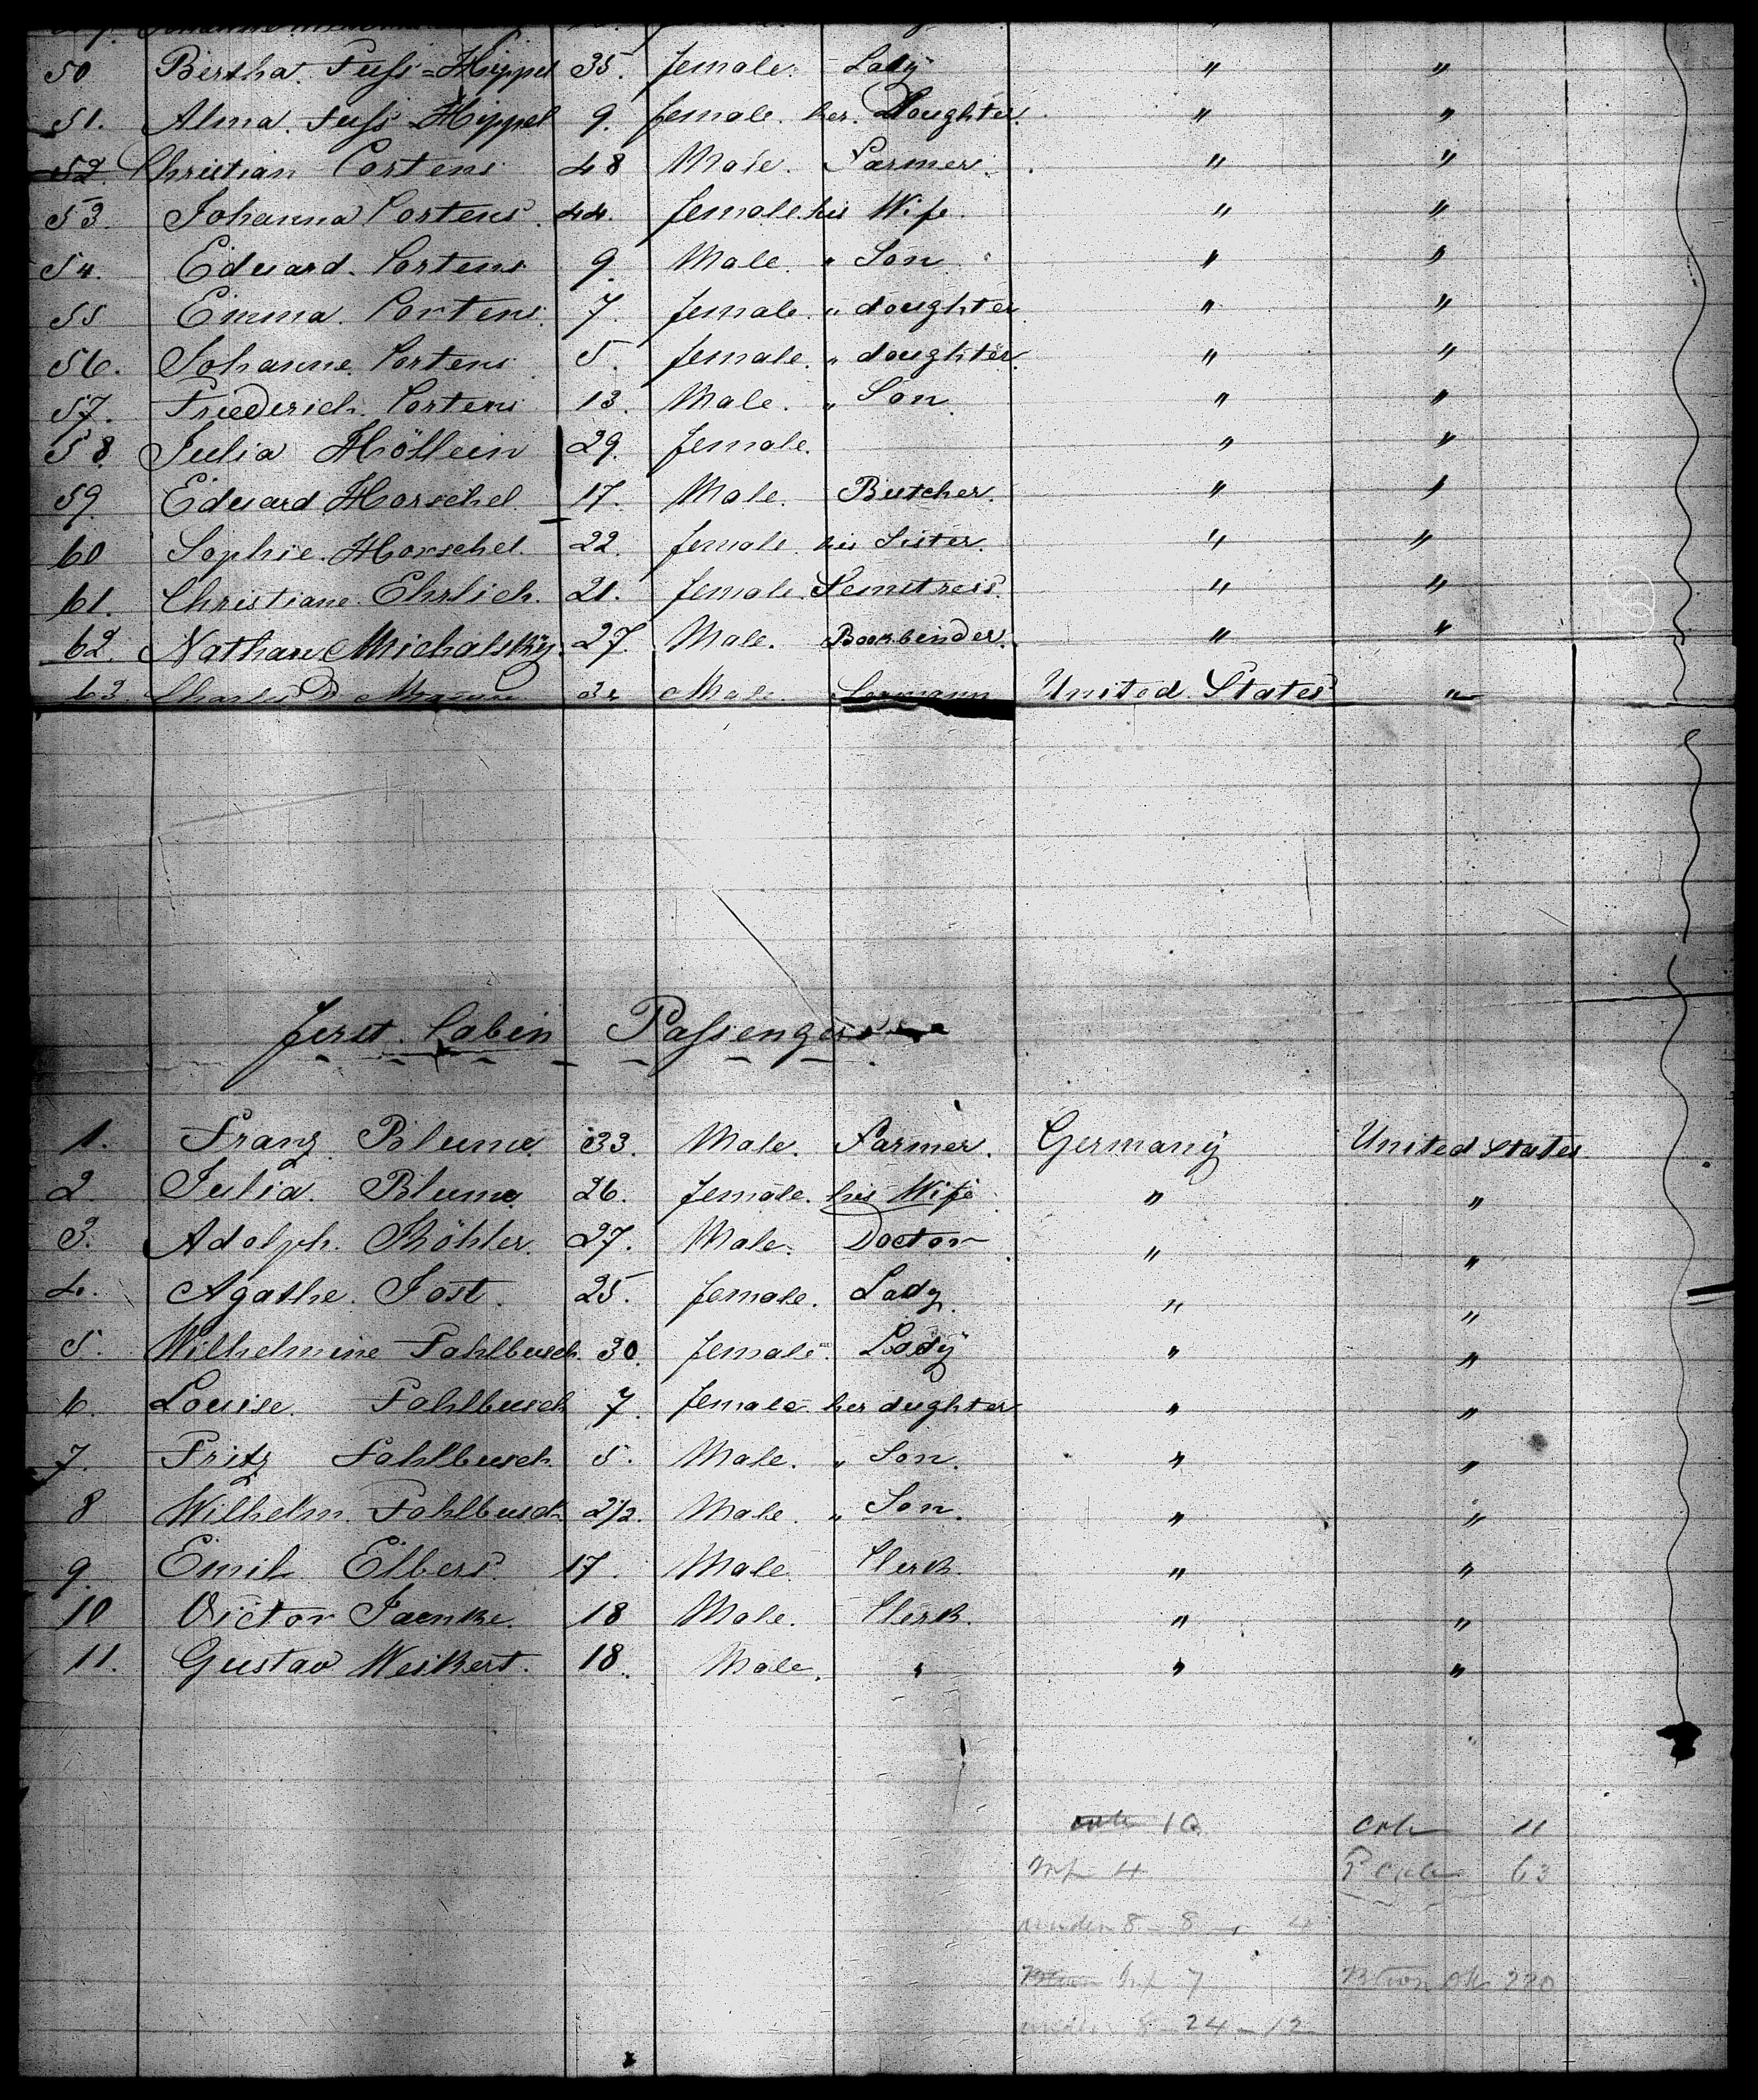 50 Bertha. Fuss=Hippel 35. female. Lady " "
51. Alma. Fuss Hippel 9. female. her. Doughter. " "
52. Christian Cortens 48 Male. Farmer. " "
53. Johanna Cortens. 44. female. his Wife. " "
54. Eduard. Cortens 9. Male. " Son " "
55 Emma. Cortens. 7. female. " doughter " "
56. Johanne. Cortens 5. female. " doughter. " "
57. Friederich. Cortens 13. Male. " Son. " "
58. Julia Höllein 29. female. " "
59. Eduard Horschel. 17. Male. Butcher. " "
60 Sophie. Horschel. 22. female. his Sister. " "
61. Christiane. Ehrlich. 21. female. Semstress. " "
62. Nathan Michalsky. 27. Male. Bookbinder. " "
63 Charles Male. United States "
First. Cabin Passengers
1. Franz Blume. 33. Male. Farmer. Germany United States
2. Julia. Blume 26. female. his Wife " "
3. Adolph. Köhler. 27. Male. Doctor " "
4. Agathe. Jost. 25. female. Lady. " "
5. Wilhelmine Fahlbusch. 30. female. Lady " "
6. Louise. Fahlbusch 7. female her dughter " "
7. Fritz Fahlbusch. 5. Male. " Son. " "
8 Wilhelm. Fahlbusch. 2/2. Male. " Son. " "
9. Emil Elbers. 17. Male. Clerk. " "
10 Victor Jaenke. 18 Male. Clerk. " "
11. Gustav Weikert. 18. Male. " " "
10 11
Inf 4 63
8 - 8 4
Inf 7 220
8 24 - 12